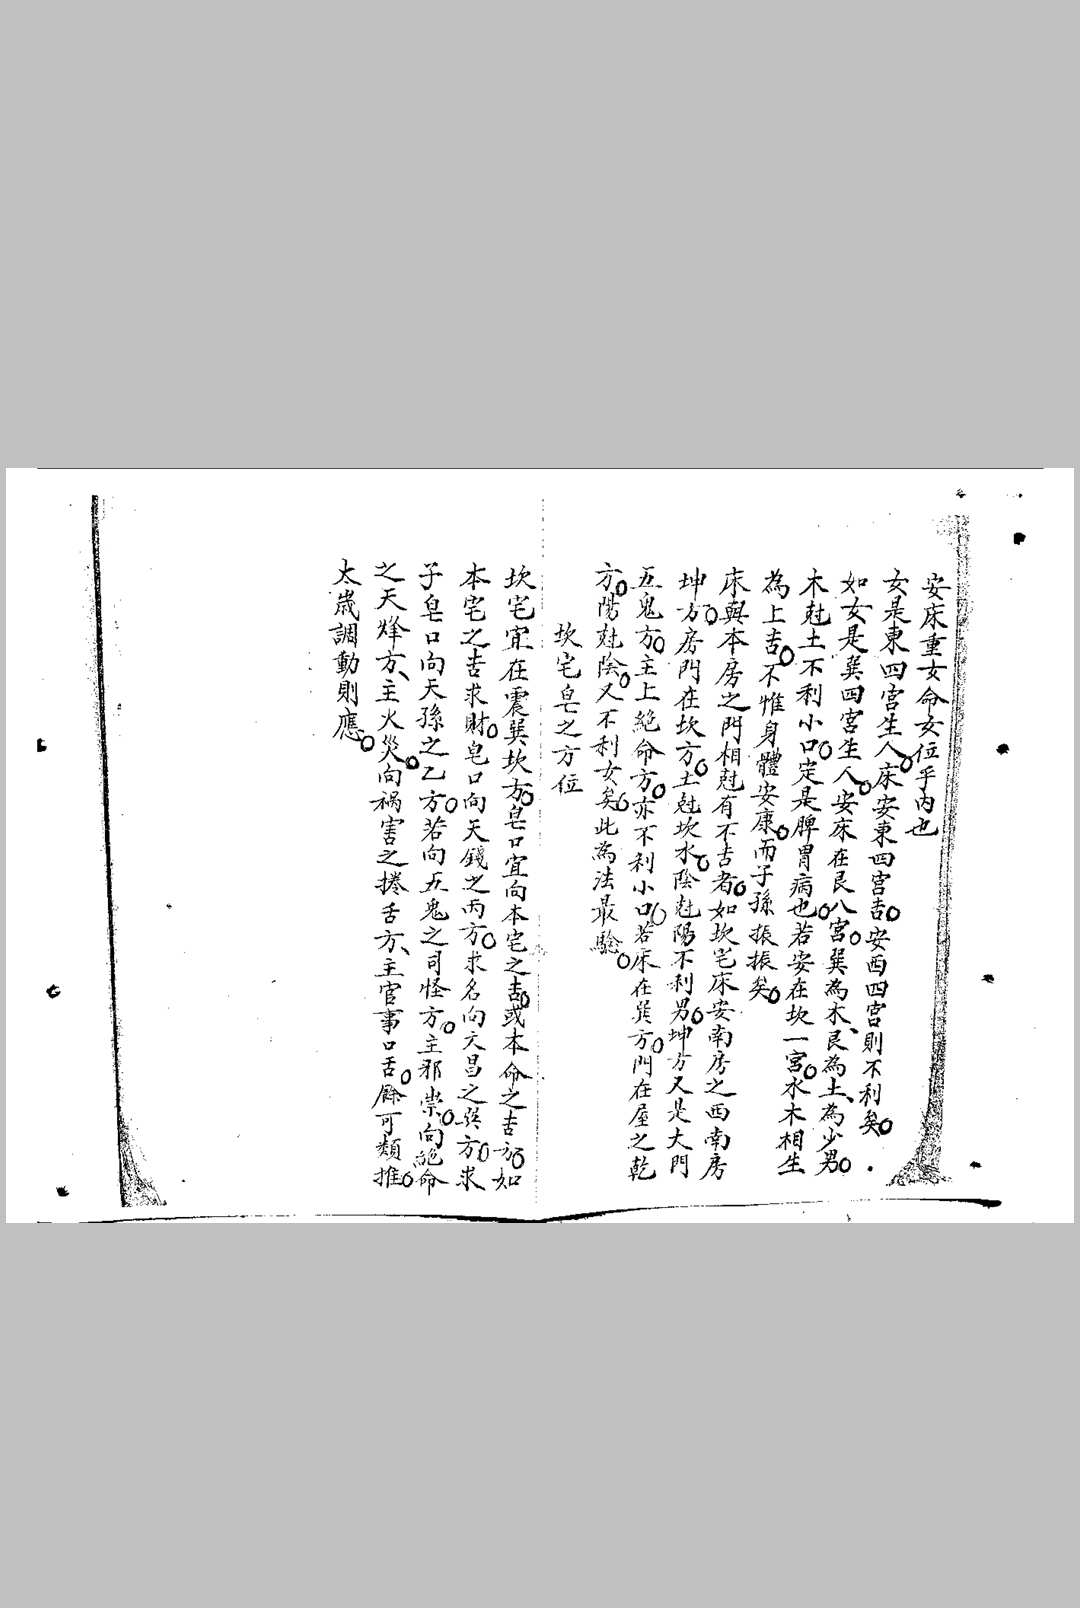 安床重女命女位乎内也
女是東四宮生人。床安東四宮吉。安西四宮則不利矣。
如女是巽四宮生人。安床在艮八宮。巽為木、艮為土、為少男。
木尅土不利小口。定是脾胃病也。若安在坎一宮。水木相生
為上吉。不惟身體安康。而子孫振振矣。
床與本房之門相尅有不吉者。如坎宅床安南房之西南房
坤方。房門在坎方。土尅坎水。陰尅陽不利男。坤方又是大門
五鬼方。主上絶命方。亦不利小口。若床在巽方。門在屋之乾
方。陽尅陰。又不利女矣。此為法最驗。
坎宅皂之方位
坎宅宜在震巽坎方。皂口宜向本宅之吉。或本命之吉方。如
本宅之吉求財。皂口向天錢之丙方。求名向文昌之巽方。求
子皂口向天孫之乙方。若向五鬼之司怪方。主邪祟。向絶命
之天烽方、主火災。向禍害之捲舌方、主官事口舌。餘可類推。
太歲調動則應。